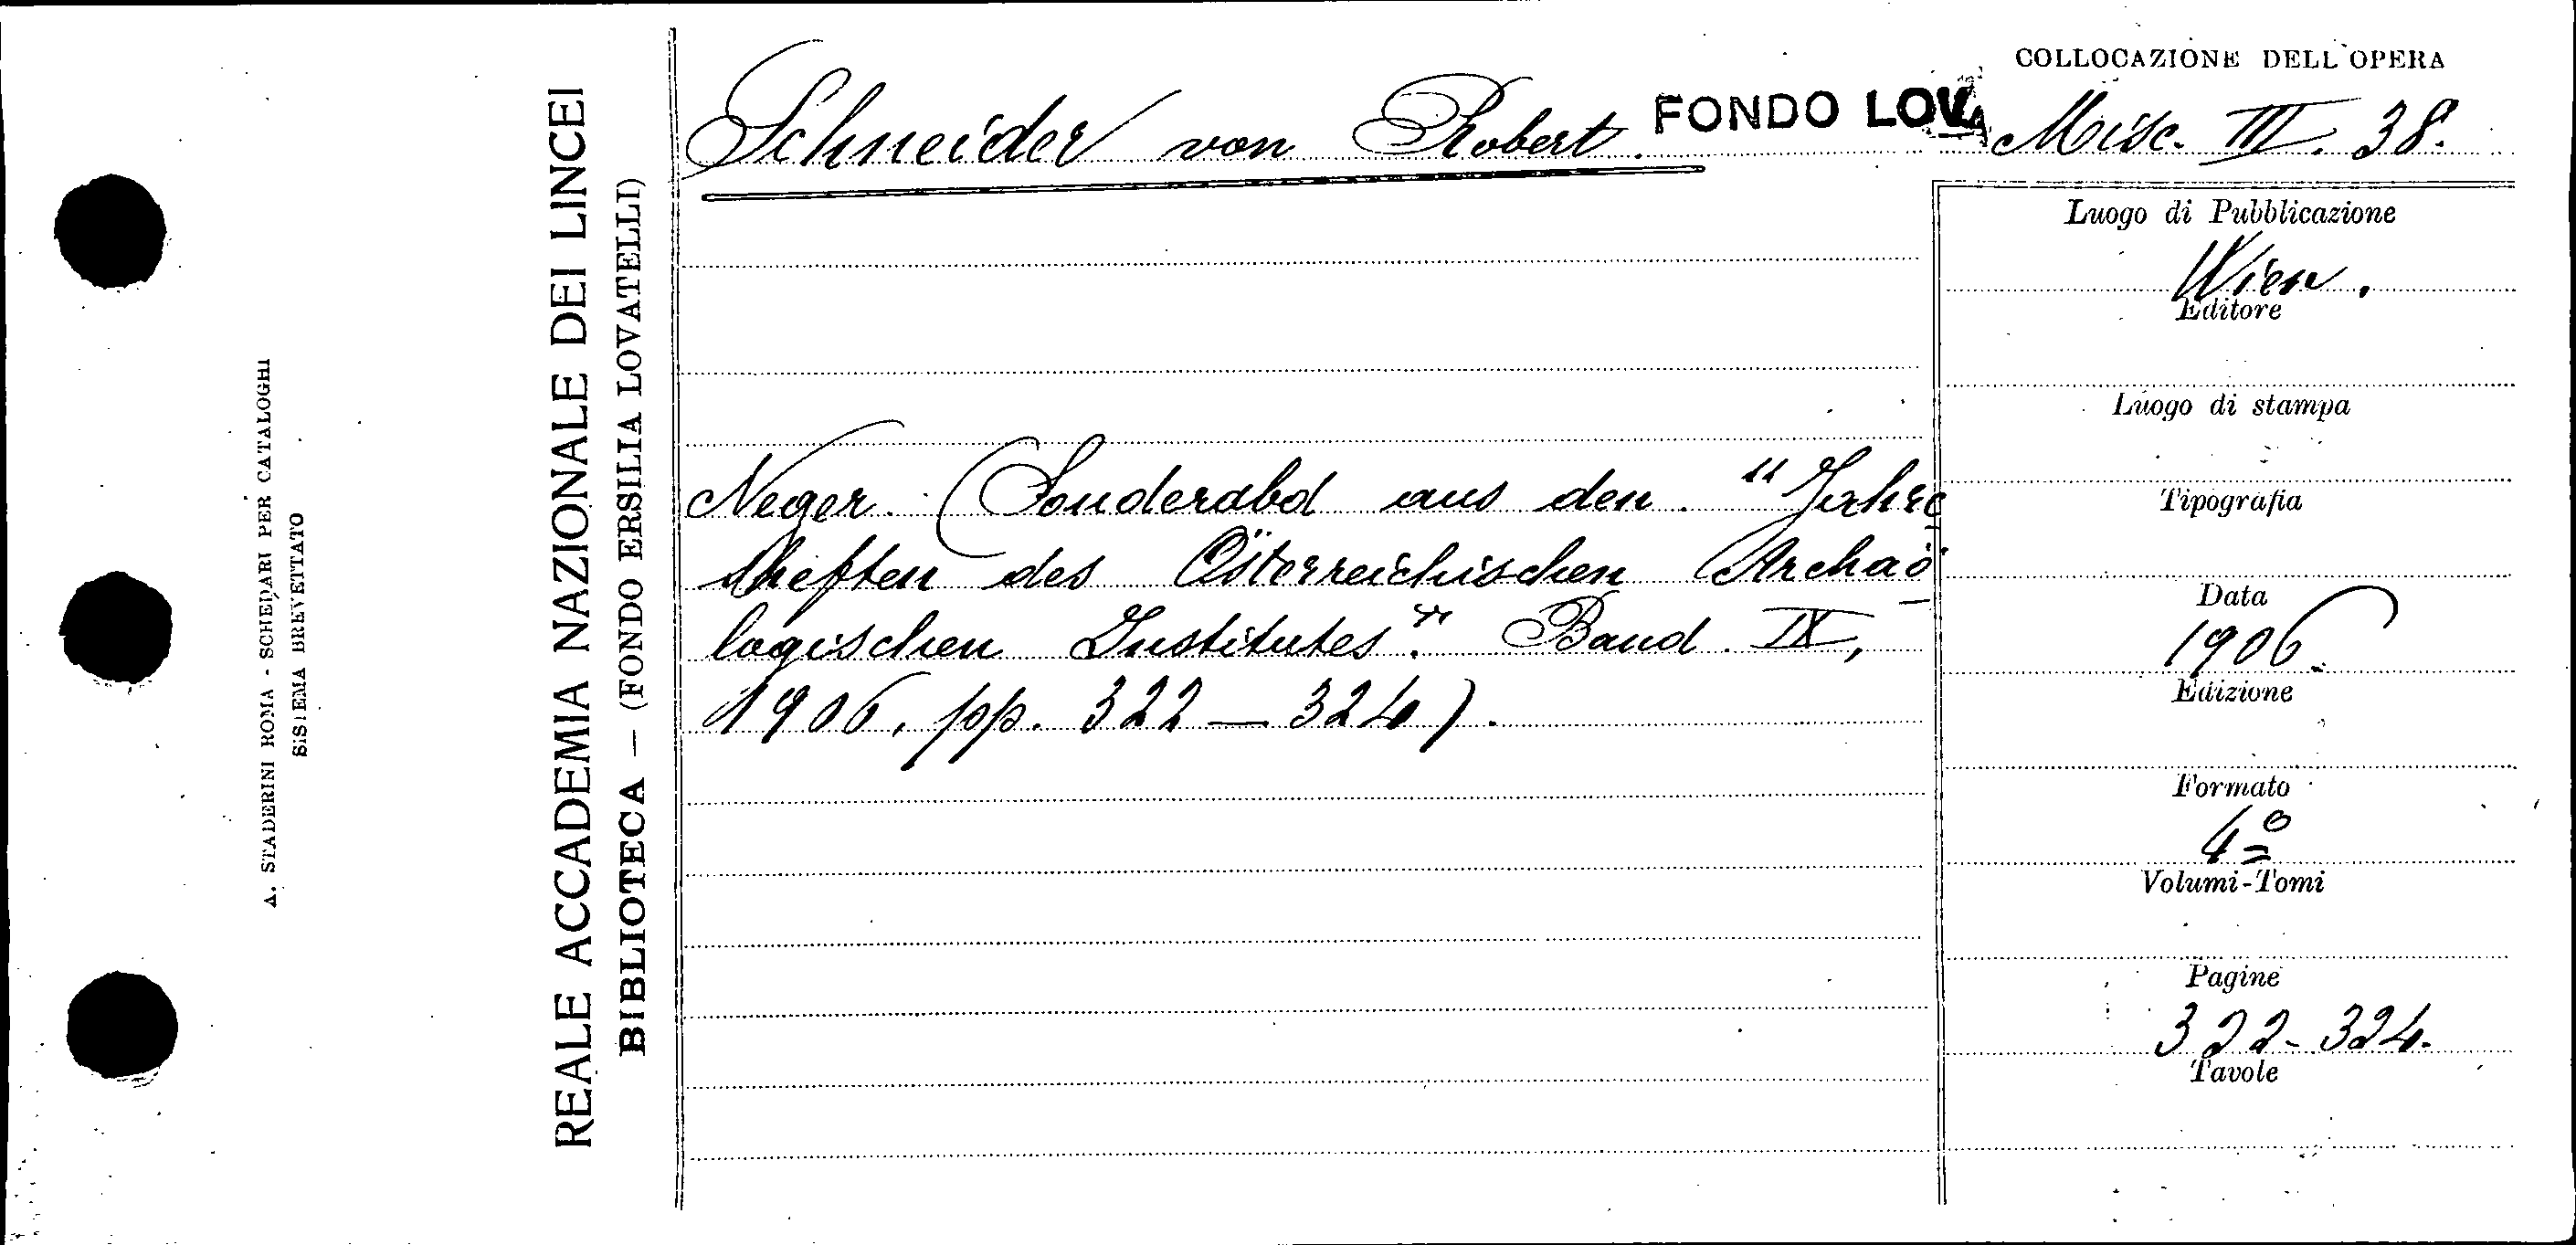 A. STADERINI ROMA - SCHEDARI PER CATALOGHI
SISTEMA BREVETTATO
REALE ACCADEMIA NAZIONALE DEI LINCEI
BIBLIOTECA — (FONDO ERSILIA LOVATELLI)
Schneider von Robert.
FONDO LOVA
COLLOCAZIONE DELL'OPERA
Misc. III. 38.
Neger. (Sonderabd aus den "Jahre
sheften des Österreichischen Archäo
logischen Institutes". Band. IX,
1906, pp. 322 — 324).
Luogo di Pubblicazione
Wien.
Editore
Luogo di stampa
Tipografia
Data
1906.
Edizione
Formato
4º
Volumi-Tomi
Pagine
322-324.
Tavole